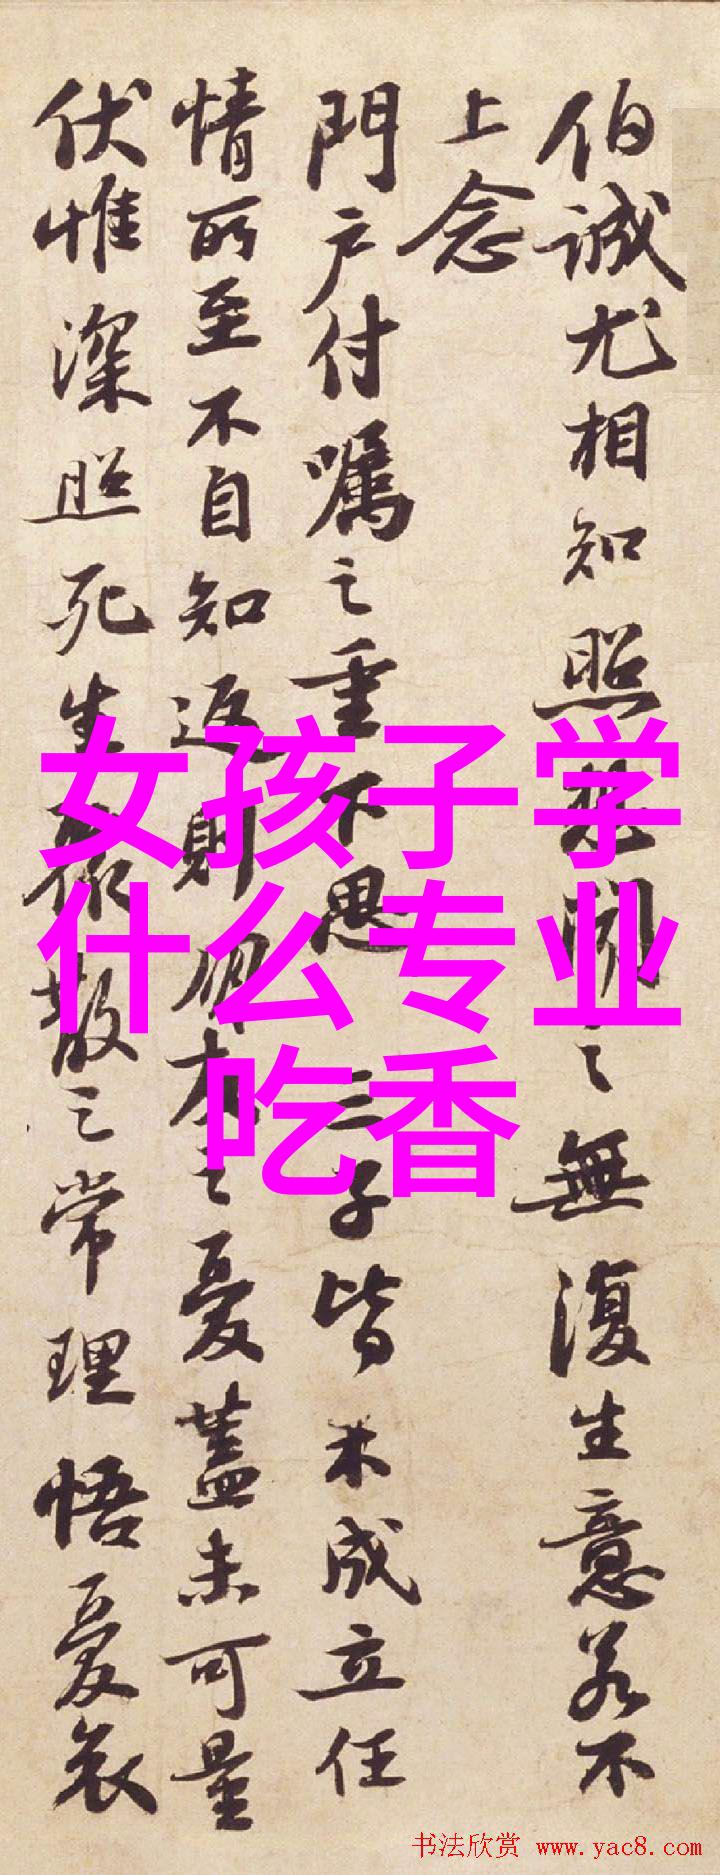 伯誠尤相知照想聞之無復生意若不
上念
門户付囑之重下思三子皆未成立任
情所至不自知返則朋友之憂蓋未可量
伏惟深照死生聚散之常理悟憂哀
女孩子学
什么专业
吃香
书法欣赏 www.yac8.com